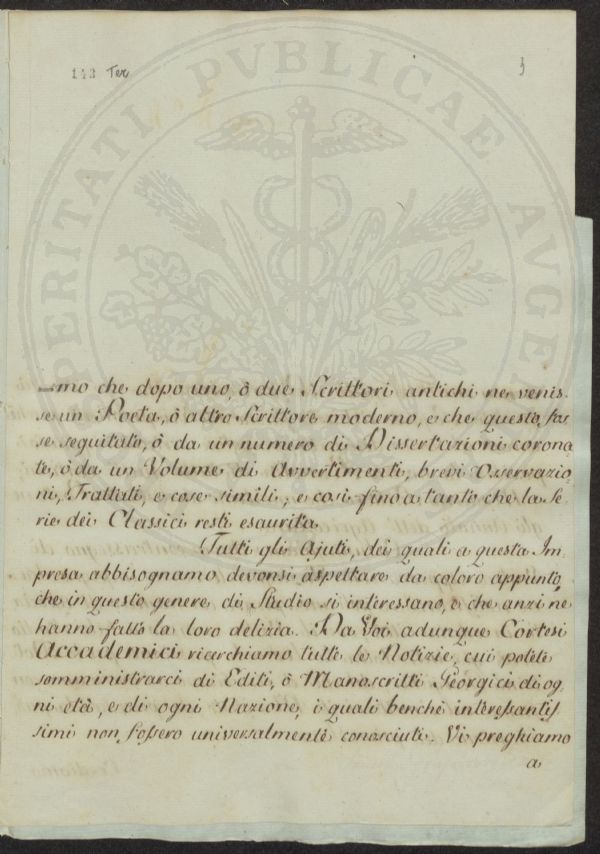 143 Ter
PERITATI PVBLICAE AVGE
mo che dopo uno, ò due Scrittori antichi ne venis=
se un Poeta, ò altro Scrittore moderno, e che questo, fos
se seguitato, ò da un numero di Dissertazioni corona
te, ò da un Volume di Avvertimenti, brevi Osservazio
ni, Trattati, e cose simili; e così fino a tanto che la Se
rie dei Classici resti esaurita.
Tutti gli Ajuti, dei quali a questa Im=
presa abbisognamo, devonsi aspettare da coloro appunto,
che in questo genere di Studio si interessano, e che anzi ne
hanno fatto la loro delizia. Da Voi adunque Cortesi
Accademici ricerchiamo tutte le Notizie, cui potete
somministrarci di Editi, ò Manoscritti Georgici di og=
ni età, e di ogni Nazione, i quali benchè interessantis
simi non fossero universalmente conosciuti. Vi preghiamo
a